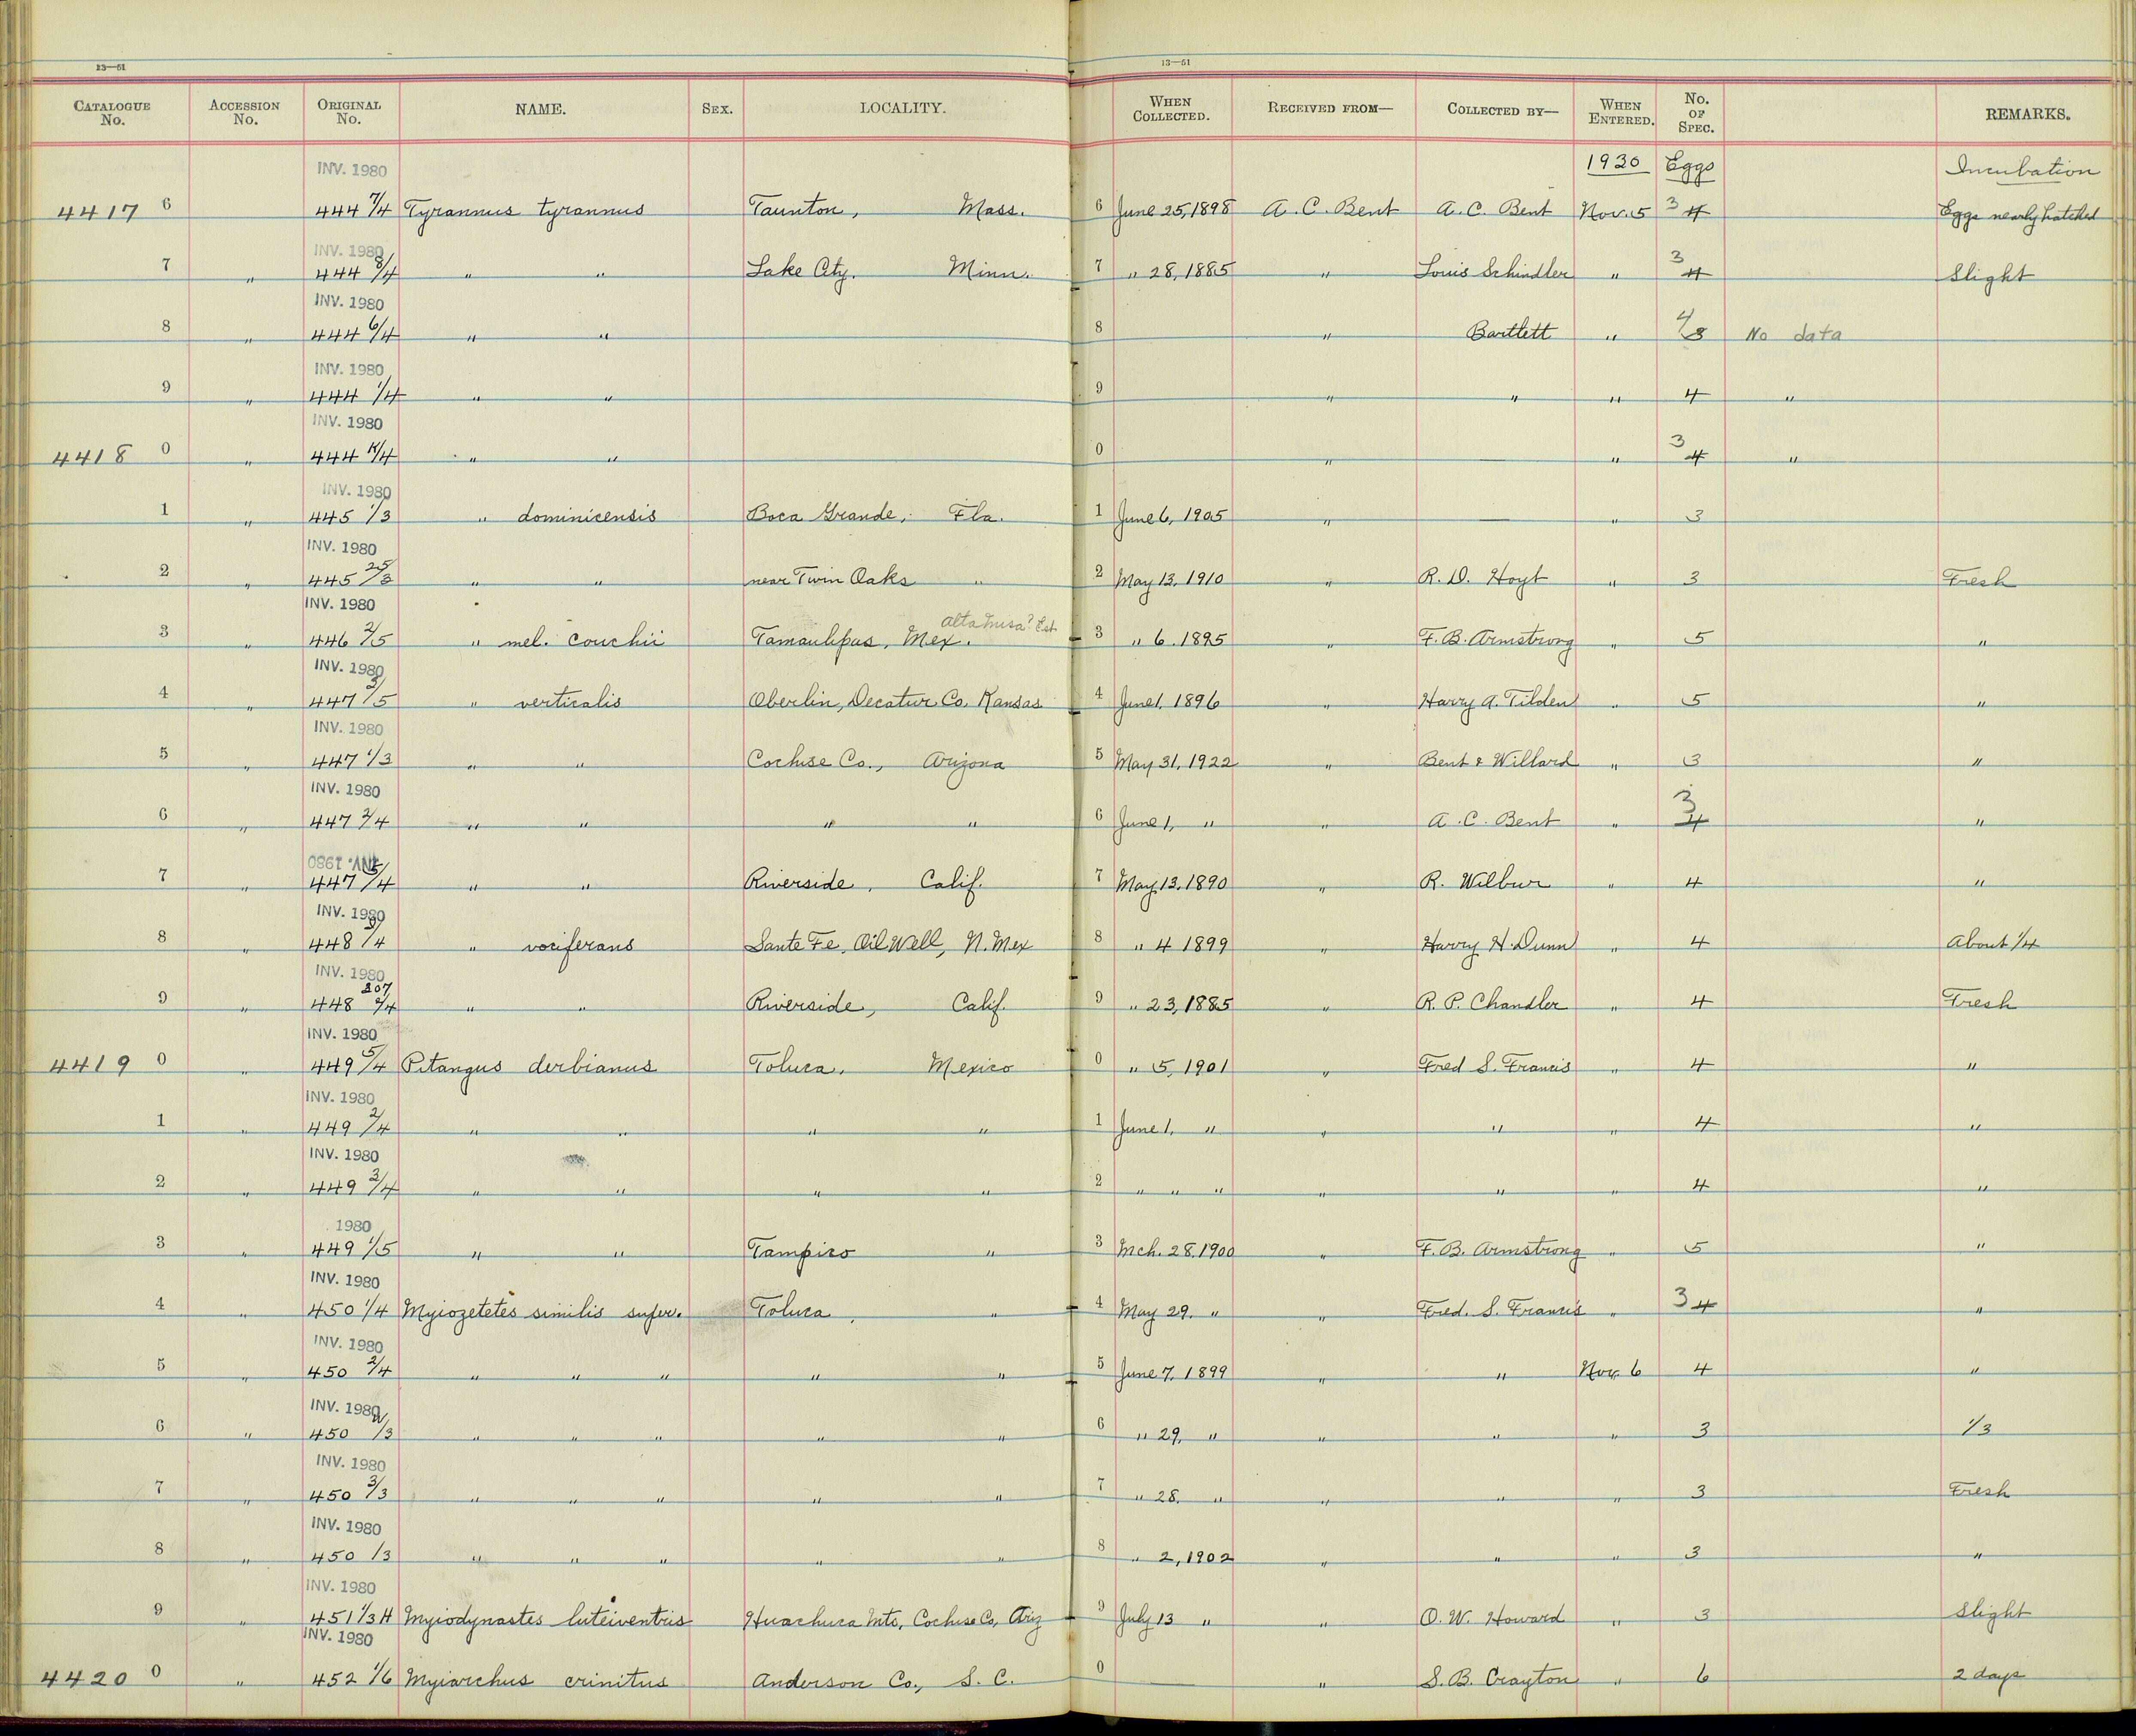 13—51 13—51
CATALOGUE No. ACCESSION No. ORIGINAL No. NAME. SEX. LOCALITY. WHEN COLLECTED. RECEIVED FROM— COLLECTED BY— WHEN ENTERED. No. OF SPEC. REMARKS.
INV. 1980 1930 Eggs Incubation
4417 6 444 7/4 Tyrannus tyrannus Taunton, Mass. 6 June 25, 1898 A. C. Bent A. C. Bent Nov. 5 3 4 Eggs nearly hatched
INV. 1980
7 " 444 8/4 " " Lake City. Minn. 7 " 28, 1885 " Louis Schindler " 3 4 Slight
INV. 1980
8 " 444 6/4 " " 8 " Bartlett " 4/3 No data
INV. 1980
9 " 444 1/4 " " 9 " " " 4 "
INV. 1980
4418 0 " 444 /4 " " 0 " — " 3 4 "
INV. 1980
1 " 445 1/3 " dominicensis Boca Grande, Fla. 1 June 6, 1905 " — " 3
INV. 1980
2 " 445 25/3 " " near Twin Oaks " 2 May 13, 1910 " R. D. Hoyt " 3 Fresh
INV. 1980
3 " 446 2/5 " mel. couchii Tamaulipas, Mex. 3 " 6. 1895 " F. B. Armstrong " 5 "
INV. 1980
4 " 447 3/5 " verticalis Oberlin, Decatur Co. Kansas 4 June 1, 1896 " Harry A. Tilden " 5 "
INV. 1980
5 " 447 1/3 " " Cochise Co., Arizona 5 May 31, 1922 " Bent & Willard " 3 "
INV. 1980
6 " 447 2/4 " " " " 6 June 1, " " A. C. Bent " 3 4 "
INV. 1980
7 " 447 5/4 " " Riverside, Calif. 7 May 13, 1890 " R. Wilbur " 4 "
INV. 1980
8 " 448 3/4 " vociferans Sante Fe, Oil Well, N. Mex 8 " 4 1899 " Harry H. Dunn " 4 About 1/4
INV. 1980
9 " 448 207/4 " " Riverside, Calif. 9 " 23, 1885 " R. P. Chandler " 4 Fresh
INV. 1980
4419 0 " 449 5/4 Pitangus derbianus Toluca, Mexico 0 " 5, 1901 " Fred S. Francis " 4 "
INV. 1980
1 " 449 2/4 " " " " 1 June 1, " " " " 4 "
INV. 1980
2 " 449 3/4 " " " " 2 " " " " " " 4 "
1980
3 " 449 1/5 " " Tampico " 3 Mch. 28, 1900 " F. B. Armstrong " 5 "
INV. 1980
4 " 450 1/4 Myiozetetes similis super. Toluca, " 4 May 29, " " Fred. S. Francis " 3 4 "
INV. 1980
5 " 450 2/4 " " " " " 5 June 7, 1899 " " Nov. 6 4 "
INV. 1980
6 " 450 /3 " " " " " 6 " 29, " " " " 3 1/3
INV. 1980
7 " 450 3/3 " " " " " 7 " 28. " " " " 3 Fresh
INV. 1980
8 " 450 1/3 " " " " " 8 " 2, 1902 " " " 3 "
INV. 1980
9 " 451 1/3 H Myiodynastes luteiventris Huachuca Mts, Cochise Co, Ariz 9 July 13 " " O. W. Howard " 3 Slight
INV. 1980
4420 0 " 452 1/6 Myiarchus crinitus Anderson Co., S. C. 0 — " S. B. Crayton " 6 2 days